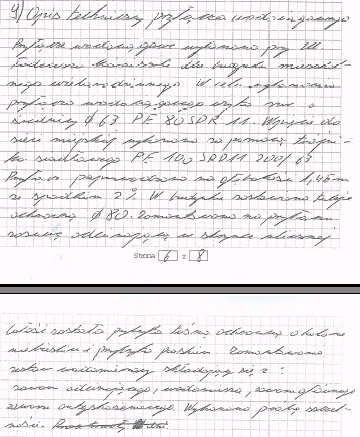 9) Opis techniczny przyłącza wodociągowego
Przyłącze wodociągowe wykonano przy ul.
dla budynku mieszkal-
nego wielorodzinnego. W celu wykonania
przyłącza wodociągowego użyto rur o
średnicy φ 63 PE 80 SDR 11. Włączenie do
sieci miejskiej wykonano za pomocą trójni-
ka siodłowego PE 100 SDR11 200/63
Przyłącze poprowadzono na głębokości 1,45m
ze spadkiem 2%. W budynku zastosowano tuleję
ochronną φ 80. Zamontowano na przyłączu
zasuwę odcinającą w skrzynce ulicznej
Strona 6 z 8
Całość została przykryta taśmą ochronną o kolorze
niebieskim i przykryta piaskiem. Zamontowano
zestaw wodomierzowy składający się z:
zaworu odcinającego, wodomierza, zaworu odcinającego
zaworu antyskażeniowego. Wykonano próbę szczel-
ności.